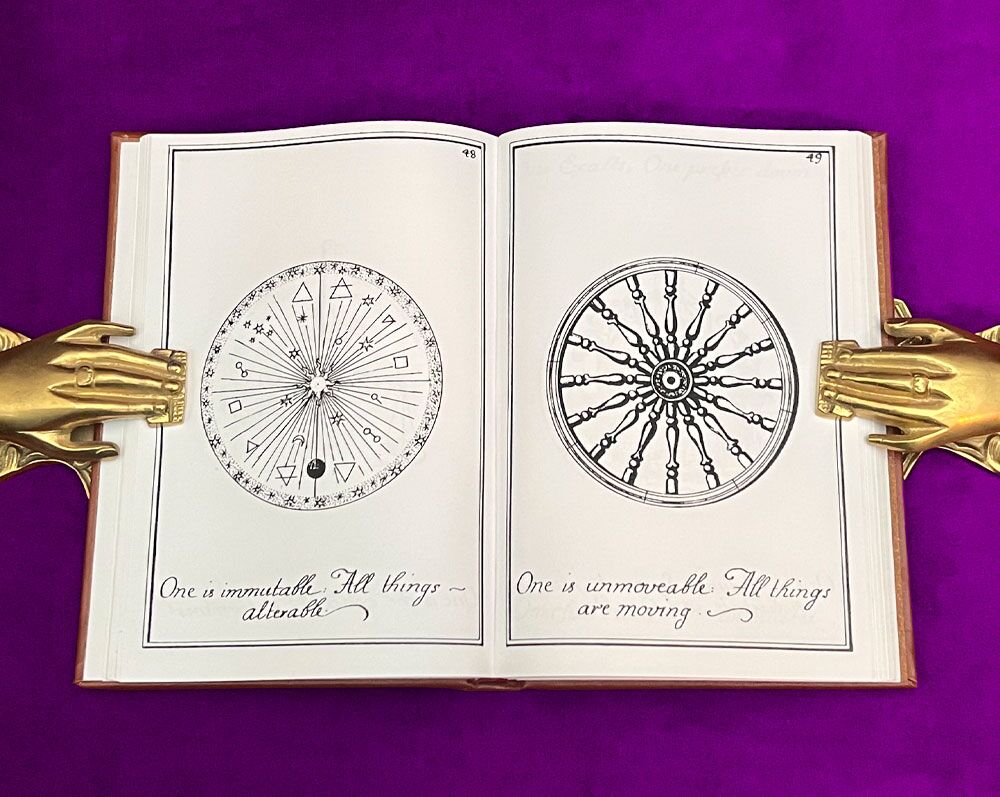 48
One is immutable: All things ~
alterable.
49
One is unmoveable: All things
are moving.